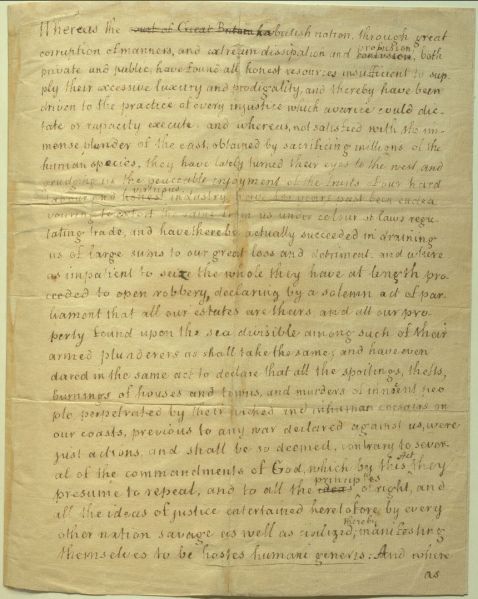 Whereas the ~~court of Great Britain~~ british nation, through great
corruption of manners, and extreme dissipation and profusion, both
private and public, have found all honest resources insufficient to sup-
ply their excessive luxury and prodigality, and thereby have been
driven to the practice of every injustice which avarice could dic-
tate or rapacity execute. and whereas, not satisfied with the im-
mense plunder of the east, obtained by sacrificing millions of the
human species, they have lately turned their eyes to the west and
grudging us the peaceable enjoyment of the fruits of our hard
labour and virtuous industry, have for years past been endea-
vouring to extort the same from us under colour of laws regu-
lating trade, and have thereby actually succeeded in draining
us of large sums to our great loss and detriment. and where-
as impatient to seize the whole they have at length pro-
ceeded to open robbery, declaring by a solemn act of par-
liament that all our estates are theirs and all our pro-
perty found upon the sea divisible among such of their
armed plunderers as shall take the same; and have even
dared in the same act to declare that all the spoilings, thefts,
burnings of houses and towns, and murders of innocent peo-
ple perpetrated by their wicked and inhuman corsairs on
our coasts, previous to any war declared against us, were
just actions, and shall be so deemed, contrary to sever-
al of the commandments of God, which by this Act they
presume to repeal, and to all the ~~ideas~~ principles of right, and
all the ideas of justice entertained heretofore by every
other nation savage as well as civilized; thereby manifesting
themselves to be hostes humani generis: And where
as